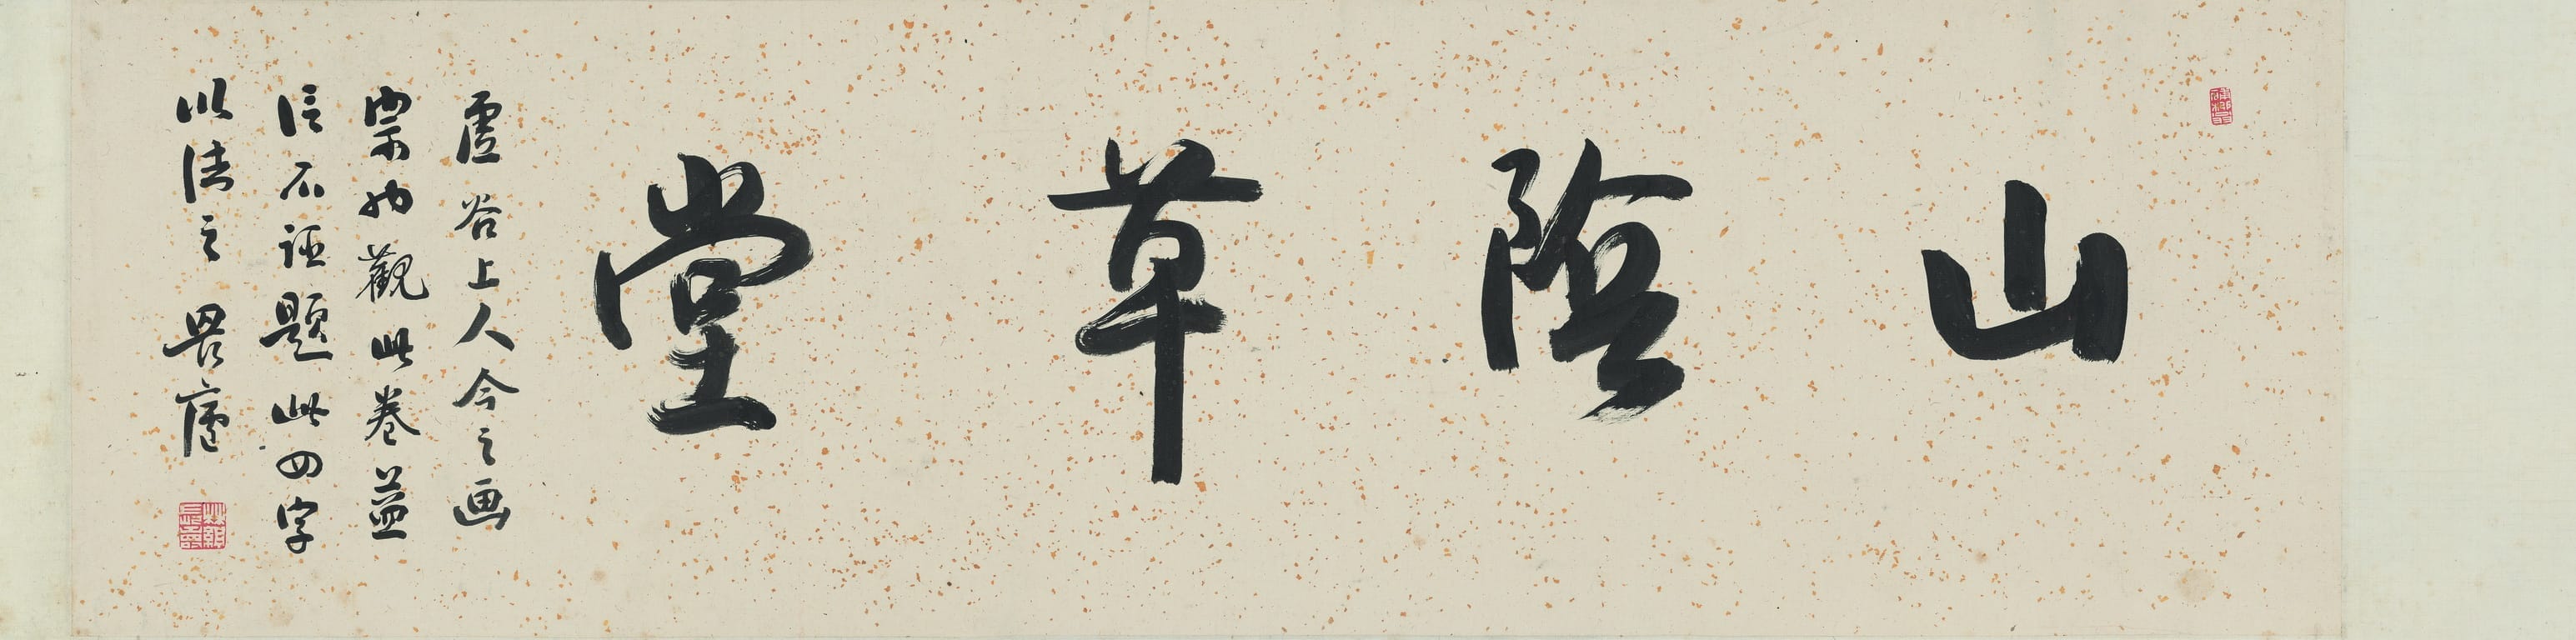 山陰草堂
虛谷上人今之画
禪也觀此卷益
信不誣題此四字
以法之 畏廬